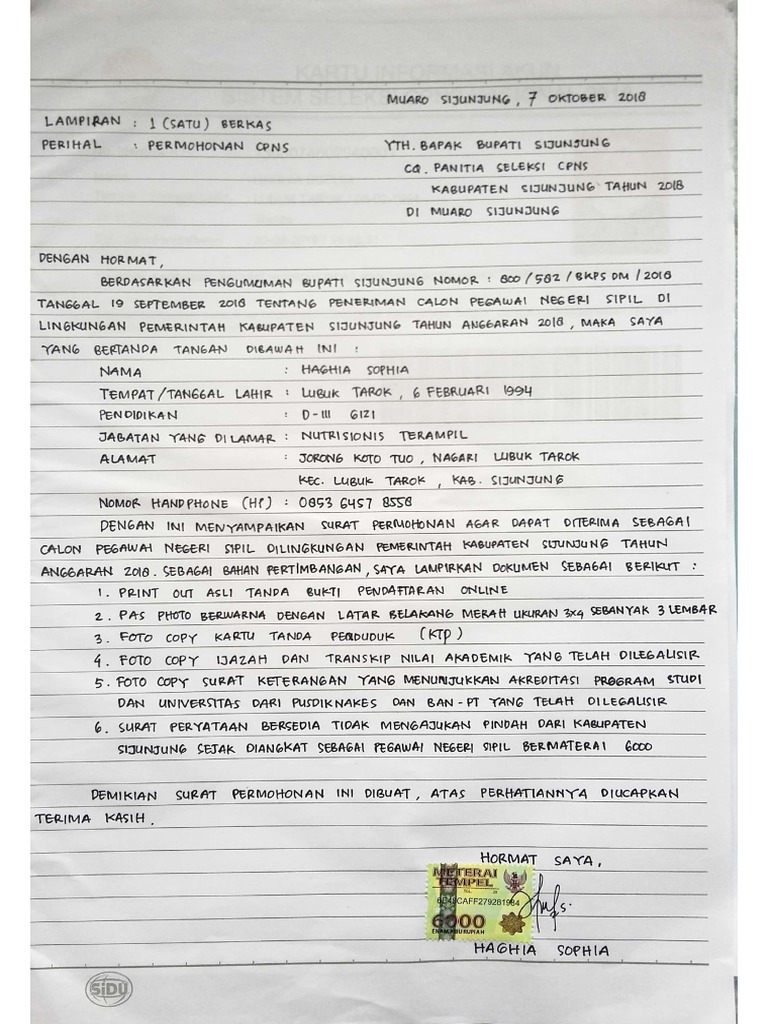 MUARO SIJUNJUNG, 7 OKTOBER 2018
LAMPIRAN : 1 (SATU) BERKAS
PERIHAL : PERMOHONAN CPNS
YTH. BAPAK BUPATI SIJUNJUNG
CQ. PANITIA SELEKSI CPNS
KABUPATEN SIJUNJUNG TAHUN 2018
DI MUARO SIJUNJUNG
DENGAN HORMAT,
BERDASARKAN PENGUMUMAN BUPATI SIJUNJUNG NOMOR : 800/582/BKPSDM/2018
TANGGAL 19 SEPTEMBER 2018 TENTANG PENERIMAN CALON PEGAWAI NEGERI SIPIL DI
LINGKUNGAN PEMERINTAH KABUPATEN SIJUNJUNG TAHUN ANGGARAN 2018, MAKA SAYA
YANG BERTANDA TANGAN DIBAWAH INI :
NAMA : HAGHIA SOPHIA
TEMPAT/TANGGAL LAHIR : LUBUK TAROK, 6 FEBRUARI 1994
PENDIDIKAN : D-III GIZI
JABATAN YANG DILAMAR : NUTRISIONIS TERAMPIL
ALAMAT : JORONG KOTO TUO, NAGARI LUBUK TAROK
KEC. LUBUK TAROK, KAB. SIJUNJUNG
NOMOR HANDPHONE (HP) : 0853 6457 8558
DENGAN INI MENYAMPAIKAN SURAT PERMOHONAN AGAR DAPAT DITERIMA SEBAGAI
CALON PEGAWAI NEGERI SIPIL DILINGKUNGAN PEMERINTAH KABUPATEN SIJUNJUNG TAHUN
ANGGARAN 2018. SEBAGAI BAHAN PERTIMBANGAN, SAYA LAMPIRKAN DOKUMEN SEBAGAI BERIKUT :
1. PRINT OUT ASLI TANDA BUKTI PENDAFTARAN ONLINE
2. PAS PHOTO BERWARNA DENGAN LATAR BELAKANG MERAH UKURAN 3x4 SEBANYAK 3 LEMBAR
3. FOTO COPY KARTU TANDA PENDUDUK (KTP)
4. FOTO COPY IJAZAH DAN TRANSKIP NILAI AKADEMIK YANG TELAH DILEGALISIR
5. FOTO COPY SURAT KETERANGAN YANG MENUNJUKKAN AKREDITASI PROGRAM STUDI
DAN UNIVERSITAS DARI PUSDIKNAKES DAN BAN-PT YANG TELAH DILEGALISIR
6. SURAT PERYATAAN BERSEDIA TIDAK MENGAJUKAN PINDAH DARI KABUPATEN
SIJUNJUNG SEJAK DIANGKAT SEBAGAI PEGAWAI NEGERI SIPIL BERMATERAI 6000
DEMIKIAN SURAT PERMOHONAN INI DIBUAT, ATAS PERHATIANNYA DIUCAPKAN
TERIMA KASIH.
HORMAT SAYA,
METERAI
TEMPEL
6000
ENAM RIBU RUPIAH
HAGHIA SOPHIA
SiDU